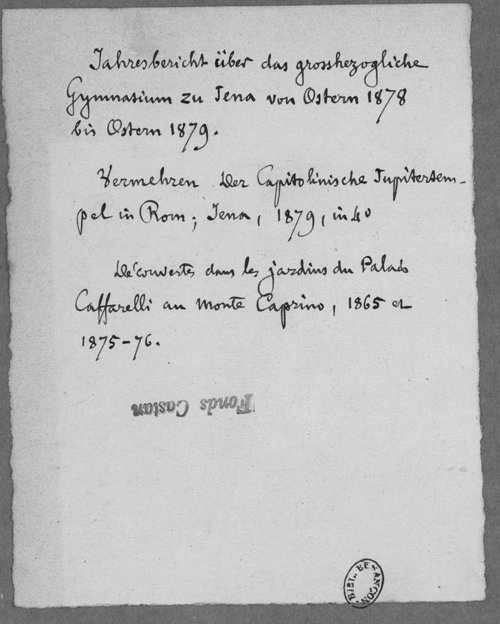 Jahresbericht über das grosshezogliche
Gymnasium zu Jena von Ostern 1878
bis Ostern 1879.
Vermehren Der Capitolinische Jupitertem-
pel in Rom; Jena, 1879, in 4º
Découvertes dans les jardins du Palais
Caffarelli au Monte Caprino, 1865 et
1875-76.
Fonds Castan
BIBL. BESANCON